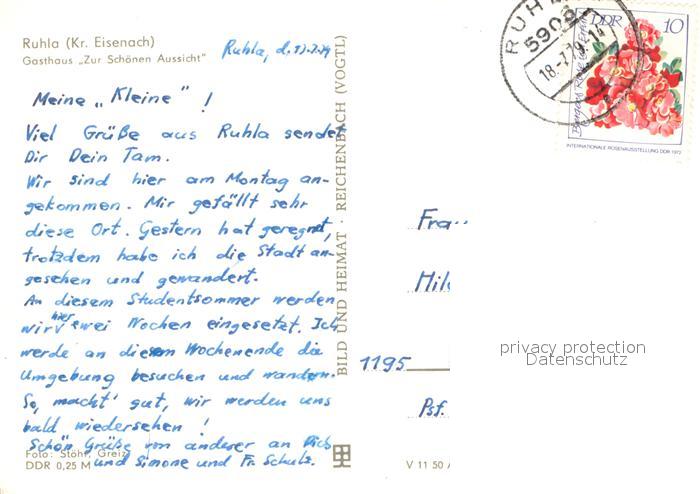 Ruhla (Kr. Eisenach)
Gasthaus „Zur Schönen Aussicht"
Ruhla, d.
Meine „Kleine" !
Viel Grüße aus Ruhla sendet
Dir Dein Tam.
Wir sind hier am Montag an-
gekommen. Mir gefällt sehr
diese Ort. Gestern hat geregnet,
trotzdem habe ich die Stadt an-
gesehen und gewandert.
An diesem Studentsommer werden
wir hier zwei Wochen eingesetzt. Ich
werde an diesem Wochenende die
Umgebung besuchen und wandern.
So, macht' gut, wir werden uns
bald wiedersehen !
Schön Grüße von anderer an Dich
und Simone und Fr. Schulz.
Foto: Stöhr, Greiz
DDR 0,25 M
BILD UND HEIMAT · REICHENBACH (VOGTL)
V 11 50
RUHLA
5909
18.-7.79.-14
DDR 10
INTERNATIONALE ROSENAUSSTELLUNG DDR 1972
Frau
1195
Psf.
privacy protection
Datenschutz